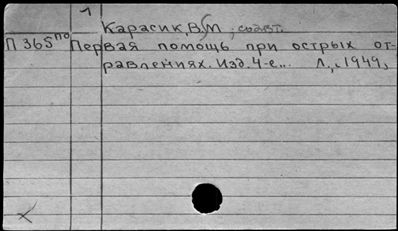 1
Карасик, В.М., соавт.
П 365 по Первая помощь при острых от-
равлениях. Изд. 4-е... Л., 1949,